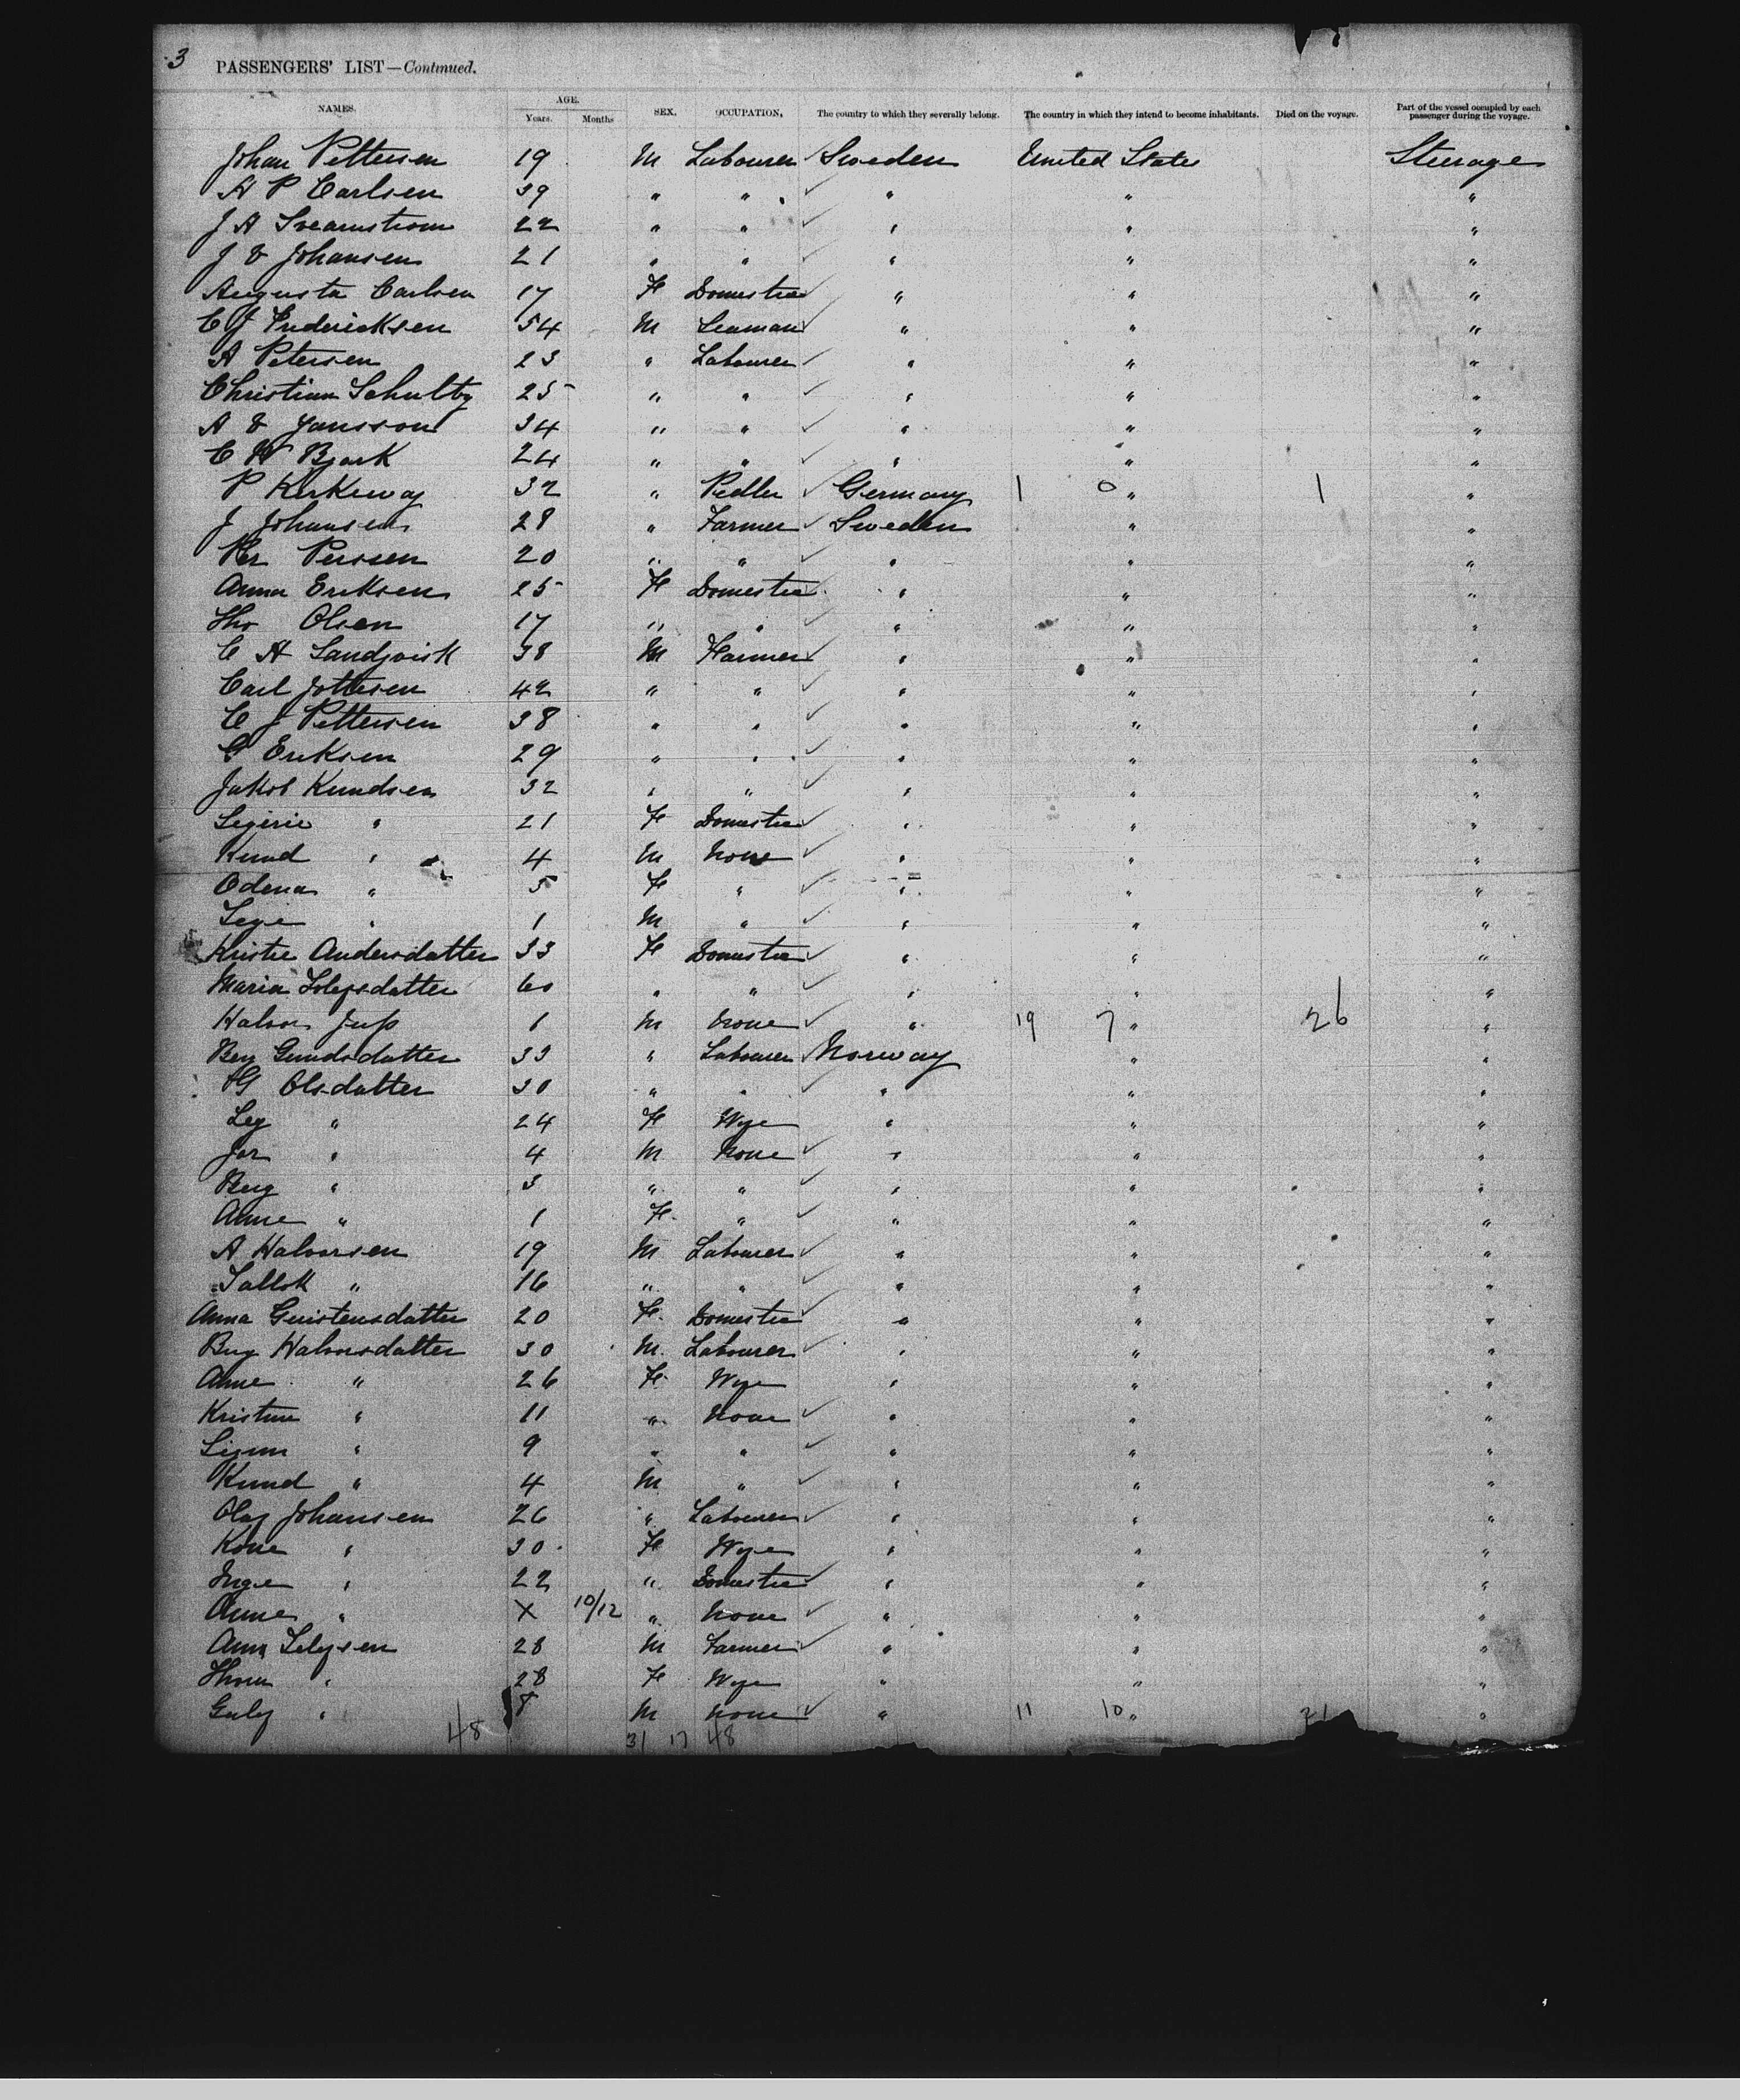 3 PASSENGERS' LIST—Continued.
NAMES. AGE. Years. Months SEX. OCCUPATION, The country to which they severally belong. The country in which they intend to become inhabitants. Died on the voyage. Part of the vessel occupied by each passenger during the voyage.
Johan Pettersen 19 M Labourer Sweden United States Steerage
A P Carlsen 39 " " " " "
J A 22 " " " " "
J E Johansen 21 " " " " "
Augusta Carlsen 17 F Domestic " " "
C J Fredericksen 54 M Seaman " " "
A Petersen 23 " Labourer " " "
Christian Schultz 25 " " " " "
A E Jansson 34 " " " " "
C W Bjork 24 " " " " "
P 32 " Pedler Germany 1 0 " 1 "
J Johansen 28 " Farmer Sweden " "
Per Perssen 20 " " " " "
Anna Eriksen 25 F Domestic " " "
Tho Olsen 17 " " " " "
C A Sandqvist 38 M Farmer " " "
Carl 42 " " " " "
C J Pettersen 38 " " " " "
G Eriksen 29 " " " " "
Jakob Knudsen 32 " " " " "
" 21 F Domestic " " "
Knud " 4 M None " " "
Odena " 5 F " " " "
" 1 M " " " "
Kristie Andersdatter 33 F Domestic " " "
Maria 60 " " " " "
Halvor 1 M None " 19 7 " 26 "
Gundsdatter 33 " Labourer Norway " "
G Olsdatter 30 " " " " "
" 24 F Wife " " "
Jor " 4 M None " " "
" 3 " " " " "
Anne " 1 F " " " "
A Halvorsen 19 M Labourer " " "
" 16 " " " " "
Anna 20 F Domestic " " "
Halvorsdatter 30 M Labourer " " "
Anne " 26 F Wife " " "
Kristine " 11 " None " " "
" 9 " " " " "
Knud " 4 M " " " "
Olaf Johansen 26 " Labourer " " "
" 30 F Wife " " "
Inge " 22 " Domestic " " "
Anne " X 10/12 " None " " "
28 M Farmer " " "
" 28 F Wife " " "
" 8 M None " 11 10 " 21 "
48 31 17 48